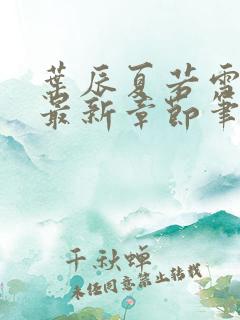 葉辰夏若雪
最新章節筆
千秋蝉
未经同意禁止转载